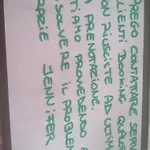 PREGO CONTATTARE SERV
CLIENTI BOOKING QUALORA
NON RIUSCISTE AD ULTIM
LA PRENOTAZIONE.
STIAMO PROVVEDENDO A
RISOLVERE IL PROBLEM
GRAZIE JENNIFER